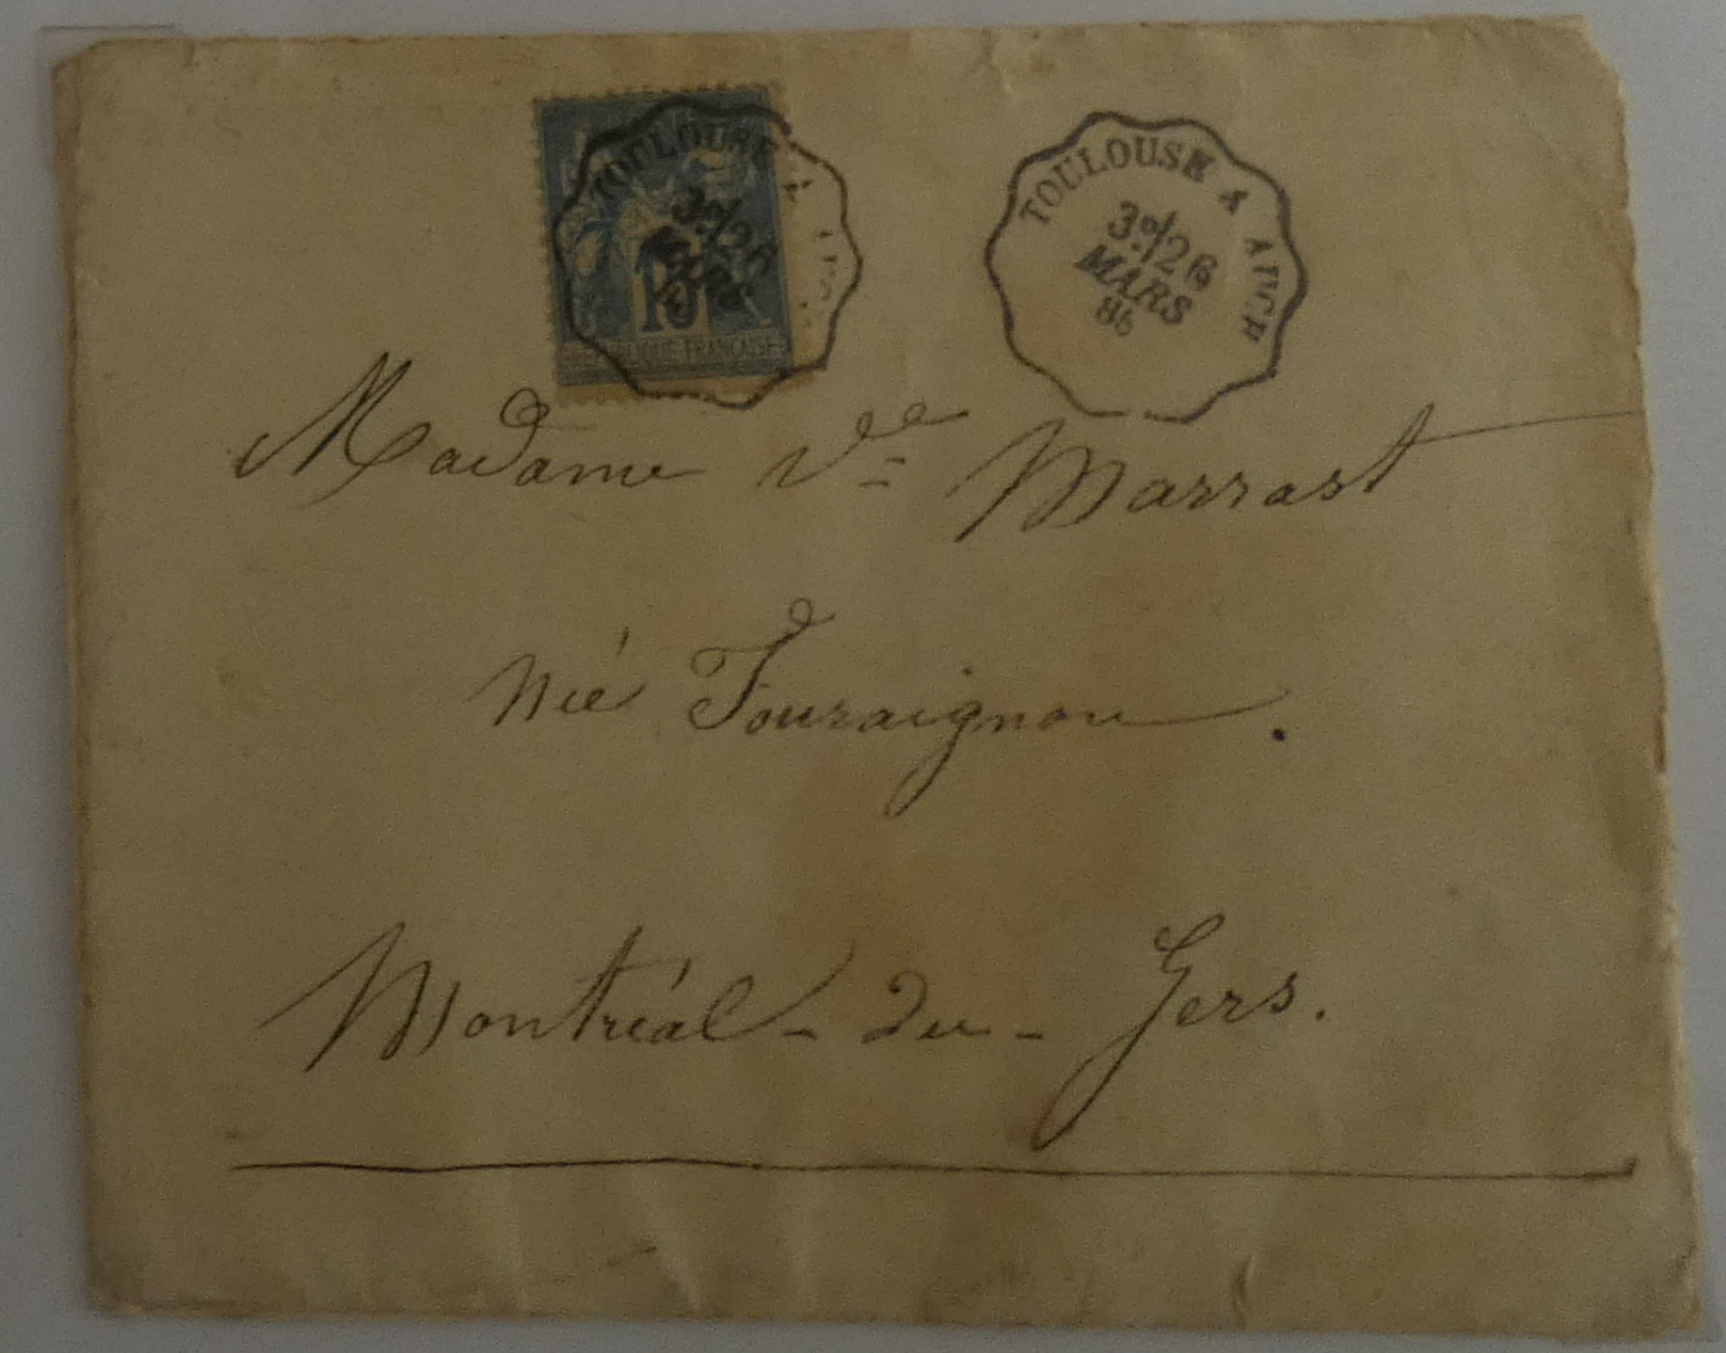 TOULOUSE A
3º/26
MARS
15
REPUBLIQUE FRANÇAISE
TOULOUSE A AUCH
3º/26
MARS
86
Madame Vee Marrast
née Touraignon.
Montréal-du-Gers.